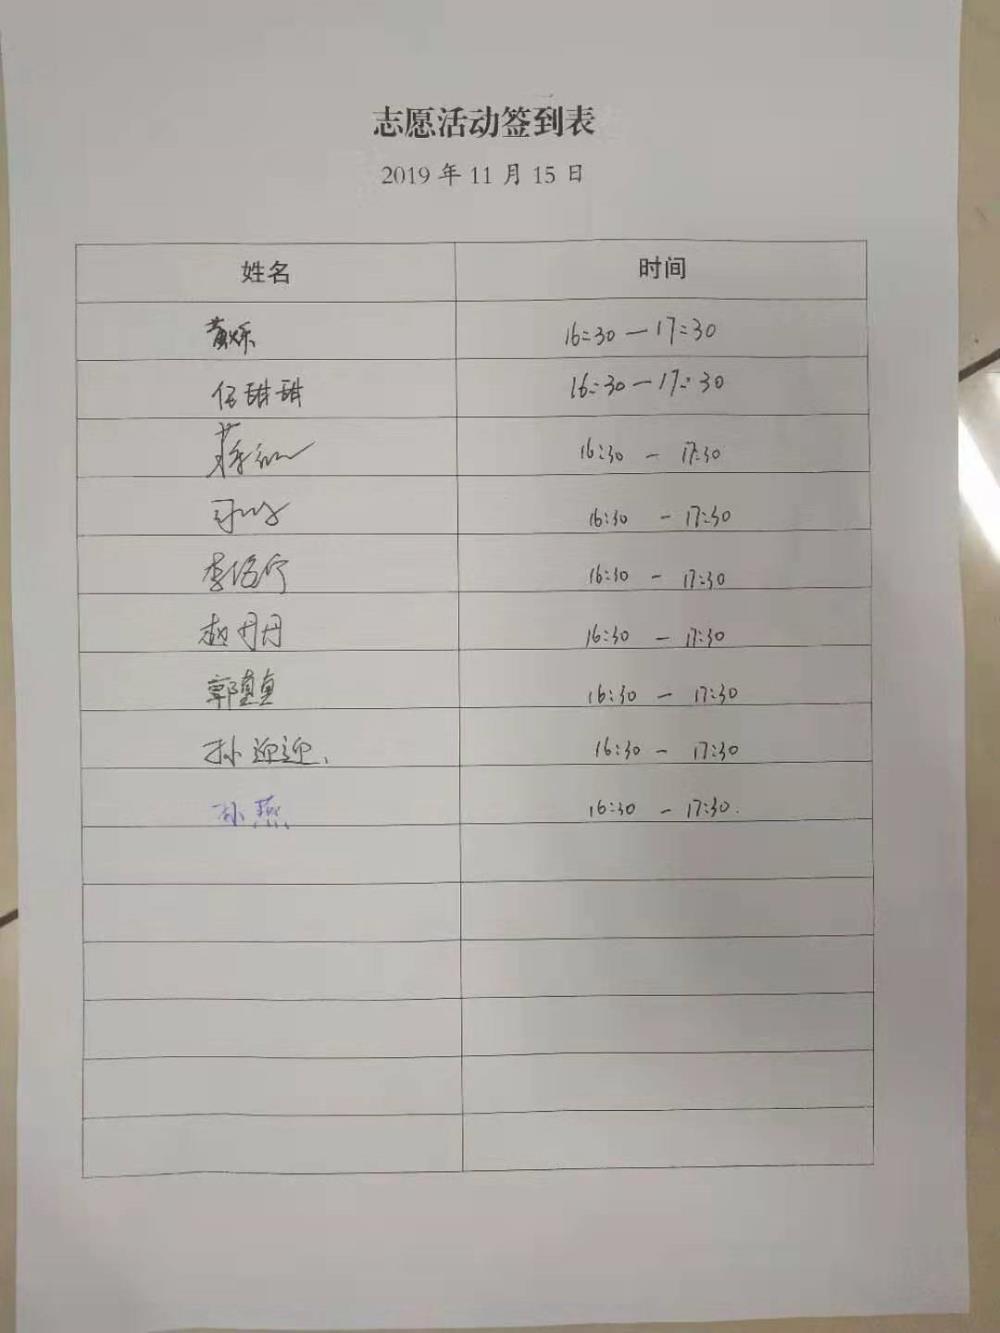 志愿活动签到表
2019 年 11 月 15 日
姓名 时间
黄烁 16:30 — 17:30
任甜甜 16:30 — 17:30
蒋 16:30 — 17:30
16:30 — 17:30
李 16:30 — 17:30
赵丹丹 16:30 — 17:30
郭真真 16:30 — 17:30
孙迎迎、 16:30 — 17:30
孙燕 16:30 — 17:30.